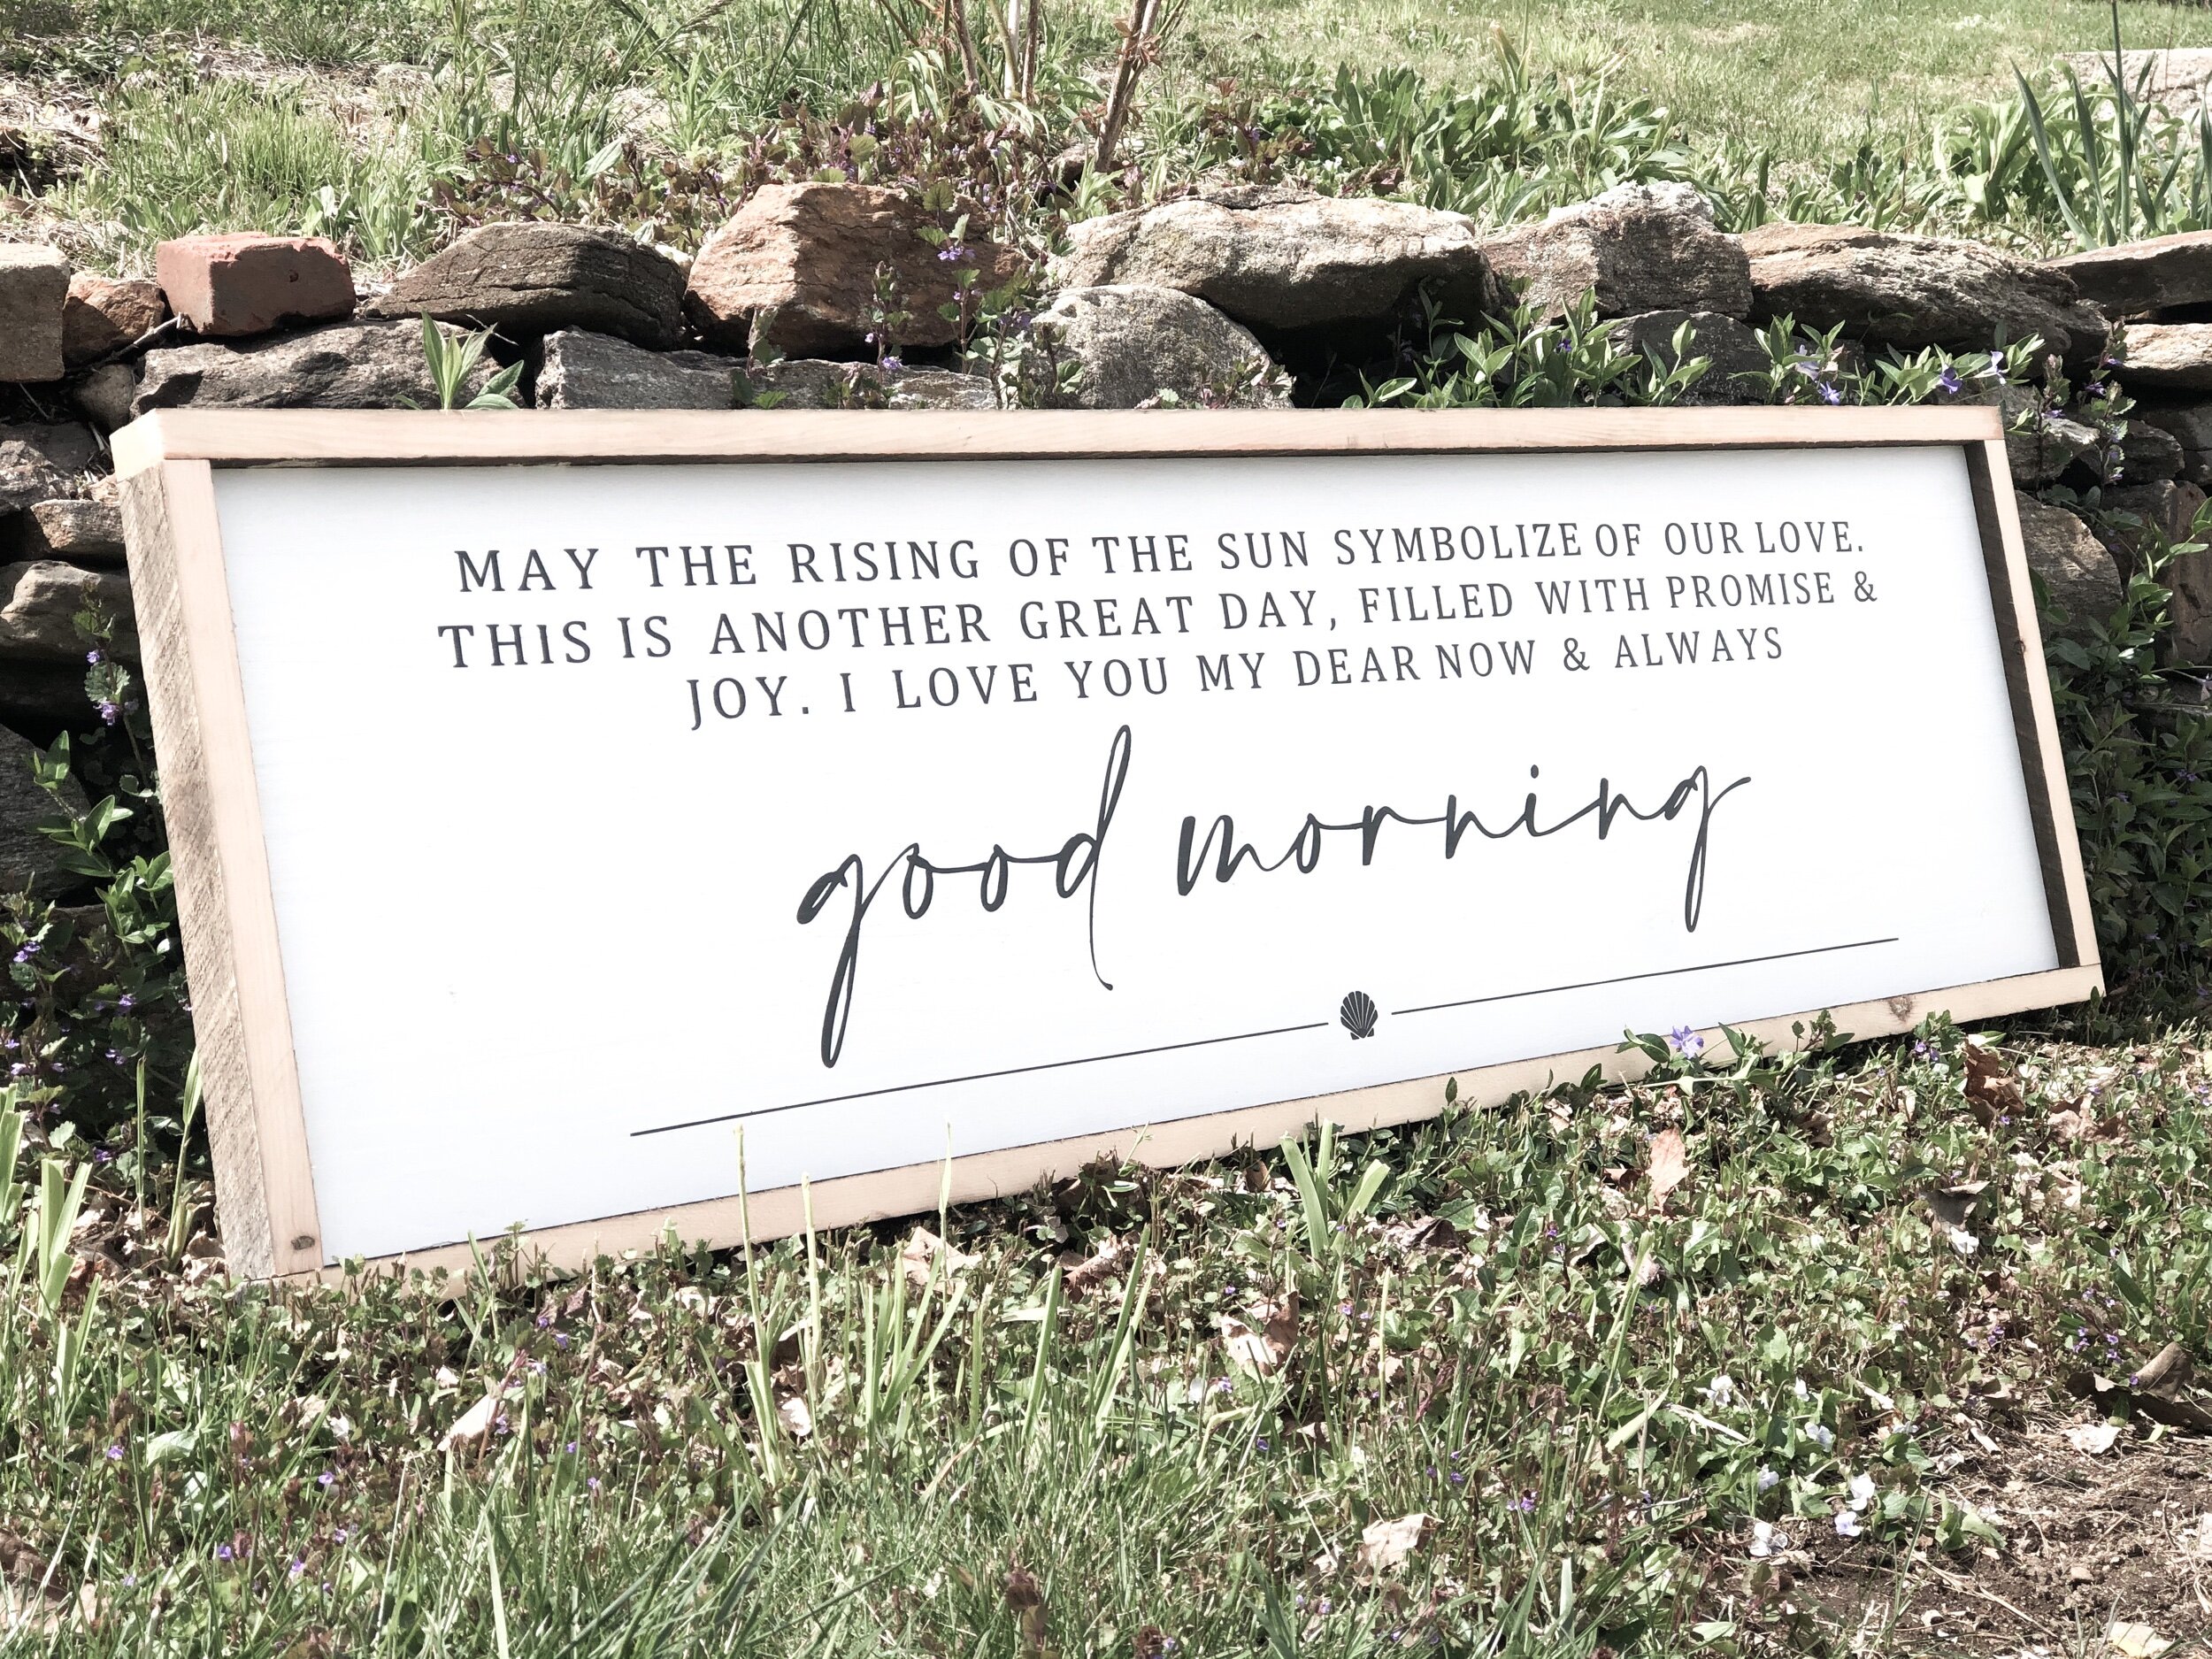 MAY THE RISING OF THE SUN SYMBOLIZE OF OUR LOVE.
THIS IS ANOTHER GREAT DAY, FILLED WITH PROMISE &
JOY. I LOVE YOU MY DEAR NOW & ALWAYS
good morning